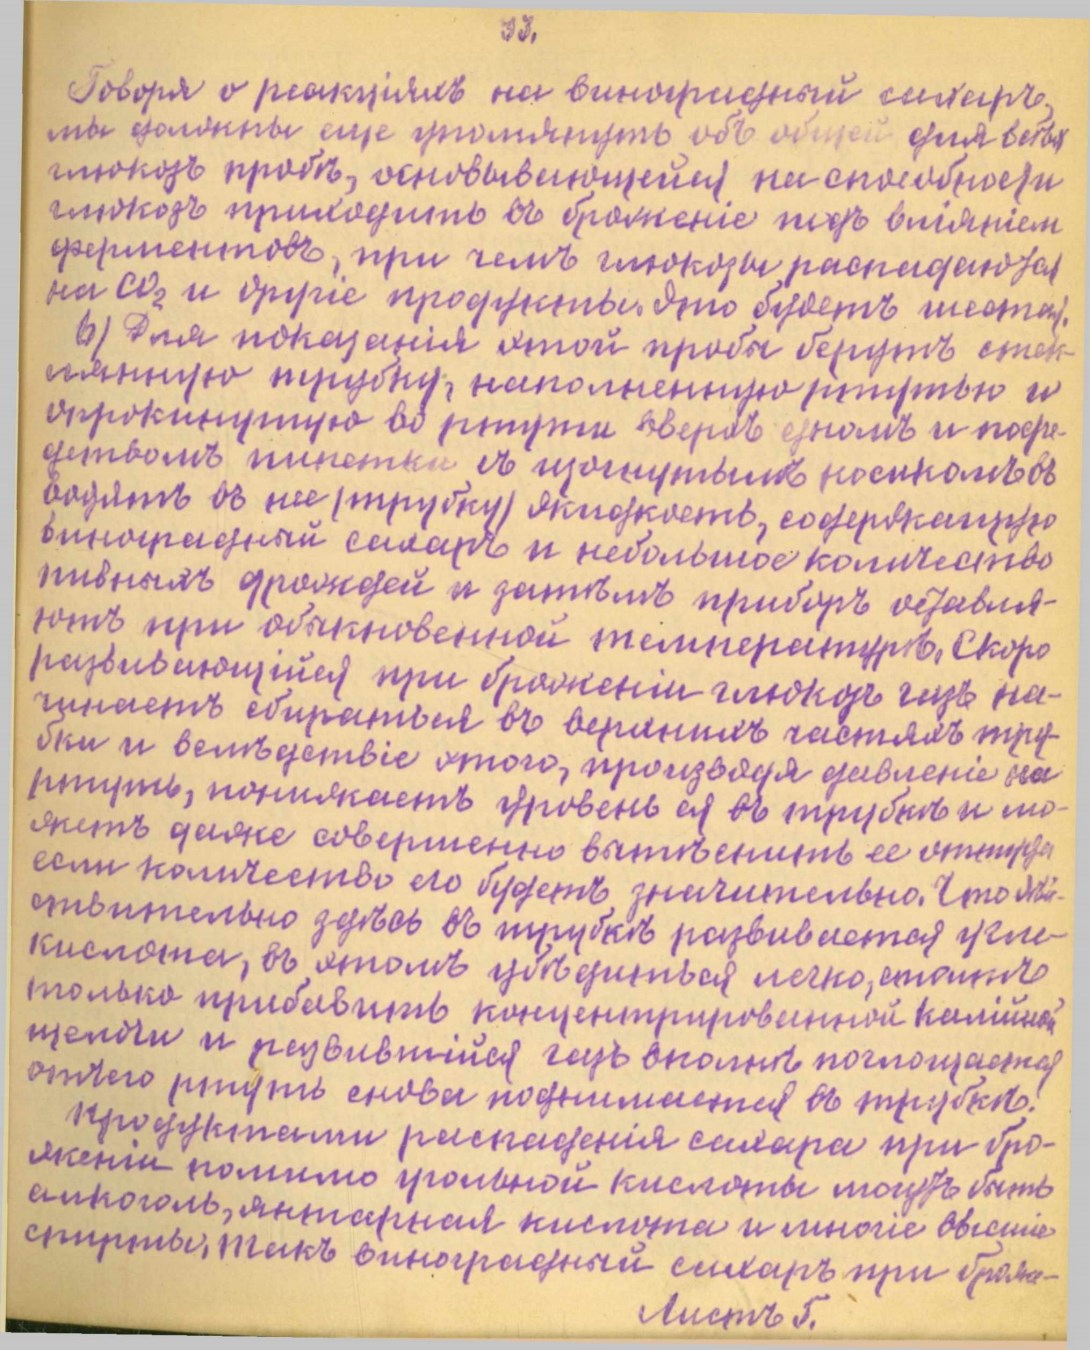 33.
Говоря о реакціяхъ на виноградный сахаръ,
мы должны еще упомянуть объ общей для всѣхъ
глюкозъ пробѣ, основывающейся на способности
глюкозъ приходить въ броженіе подъ вліяніем
ферментовъ, при чемъ глюкозы распадаются
на CO2 и другіе продукты. Это будетъ шестая.
6) Для показанія этой пробы берутъ стек-
лянную трубку, наполненную ртутью и
опрокинутую во ртути вверхъ дномъ и посре-
дствомъ пипетки съ изогнутымъ носикомъ въ
водятъ въ нее (трубку) жидкость, содержащую
виноградный сахаръ и небольшое количество
пивныхъ дрождей и затѣмъ приборъ оставля-
ютъ при обыкновенной температурѣ. Скоро
развивающійся при броженіи глюкозъ газъ на-
чинаетъ сбираться въ верхнихъ частяхъ тру-
бки и вслѣдствіе этого, производя давленіе на
ртуть, понижаетъ уровень ея въ трубкѣ и мо-
жетъ даже совершенно вытѣснить ее оттуда
если количество его будетъ значительно. Что дѣй-
ствительно здѣсь въ трубкѣ развивается угле-
кислота, въ этомъ убѣдиться легко, стоитъ
только прибавить концентрированной калійной
щелочи и развившійся газъ вполнѣ поглощается
отчего ртуть снова поднимается въ трубкѣ.
Продуктами распаденія сахара при бро-
женіи помимо угольной кислоты могутъ быть
алкоголь, янтарная кислота и многіе высшіе
спирты. Такъ виноградный сахаръ при броже-
Листъ 5.